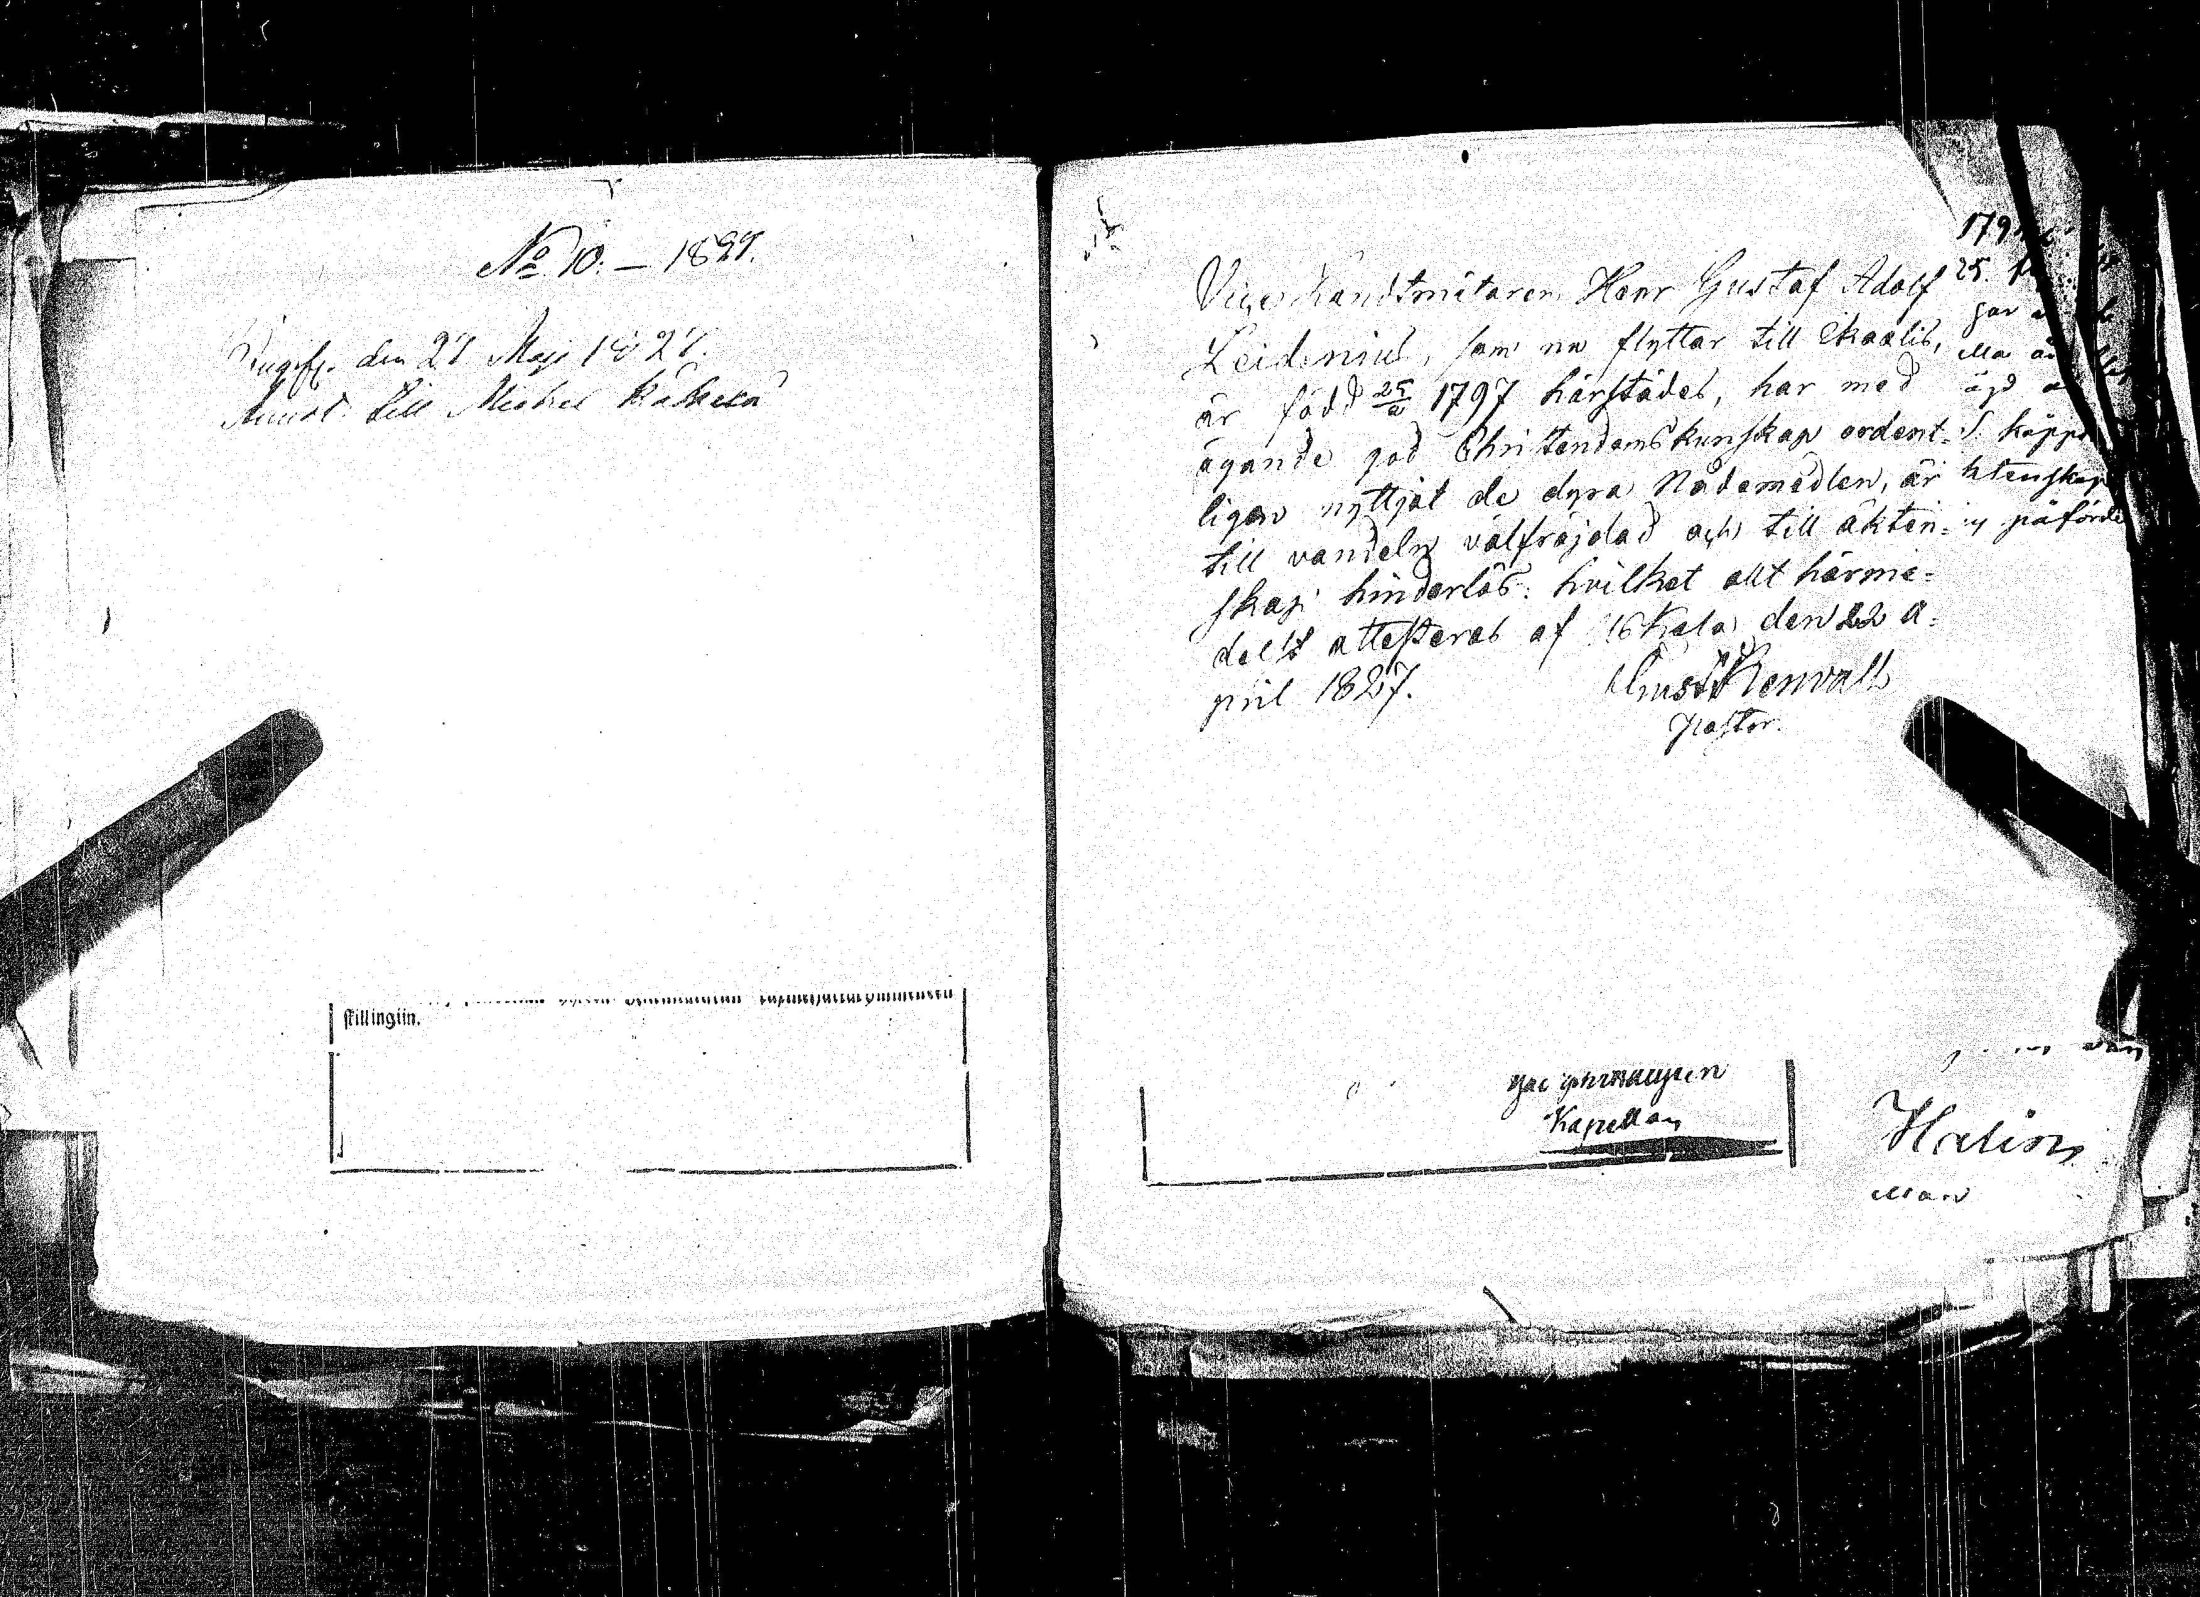 No 10. — 1827.
den 27 Maji 1827.
till Michel
skillingiin.
Vice Landtmätaren Herr Gustaf Adolf
Leidenius, som nu flyttar till Ikaalis,
är född 25/2 1797 härstädes, har med
ägande god Christendomskunskap ordent-
ligen nyttjat de dyra Nådemedlen, är
till vandeln välfräjdad och till äkten-
skap hinderlös: hvilket allt härme-
delst attesteras af Kala den 22 A-
pril 1827.
Renvall
Pastor.
179
25.
ägd
S. käpp
htenskap
påförde
Kapellan
man